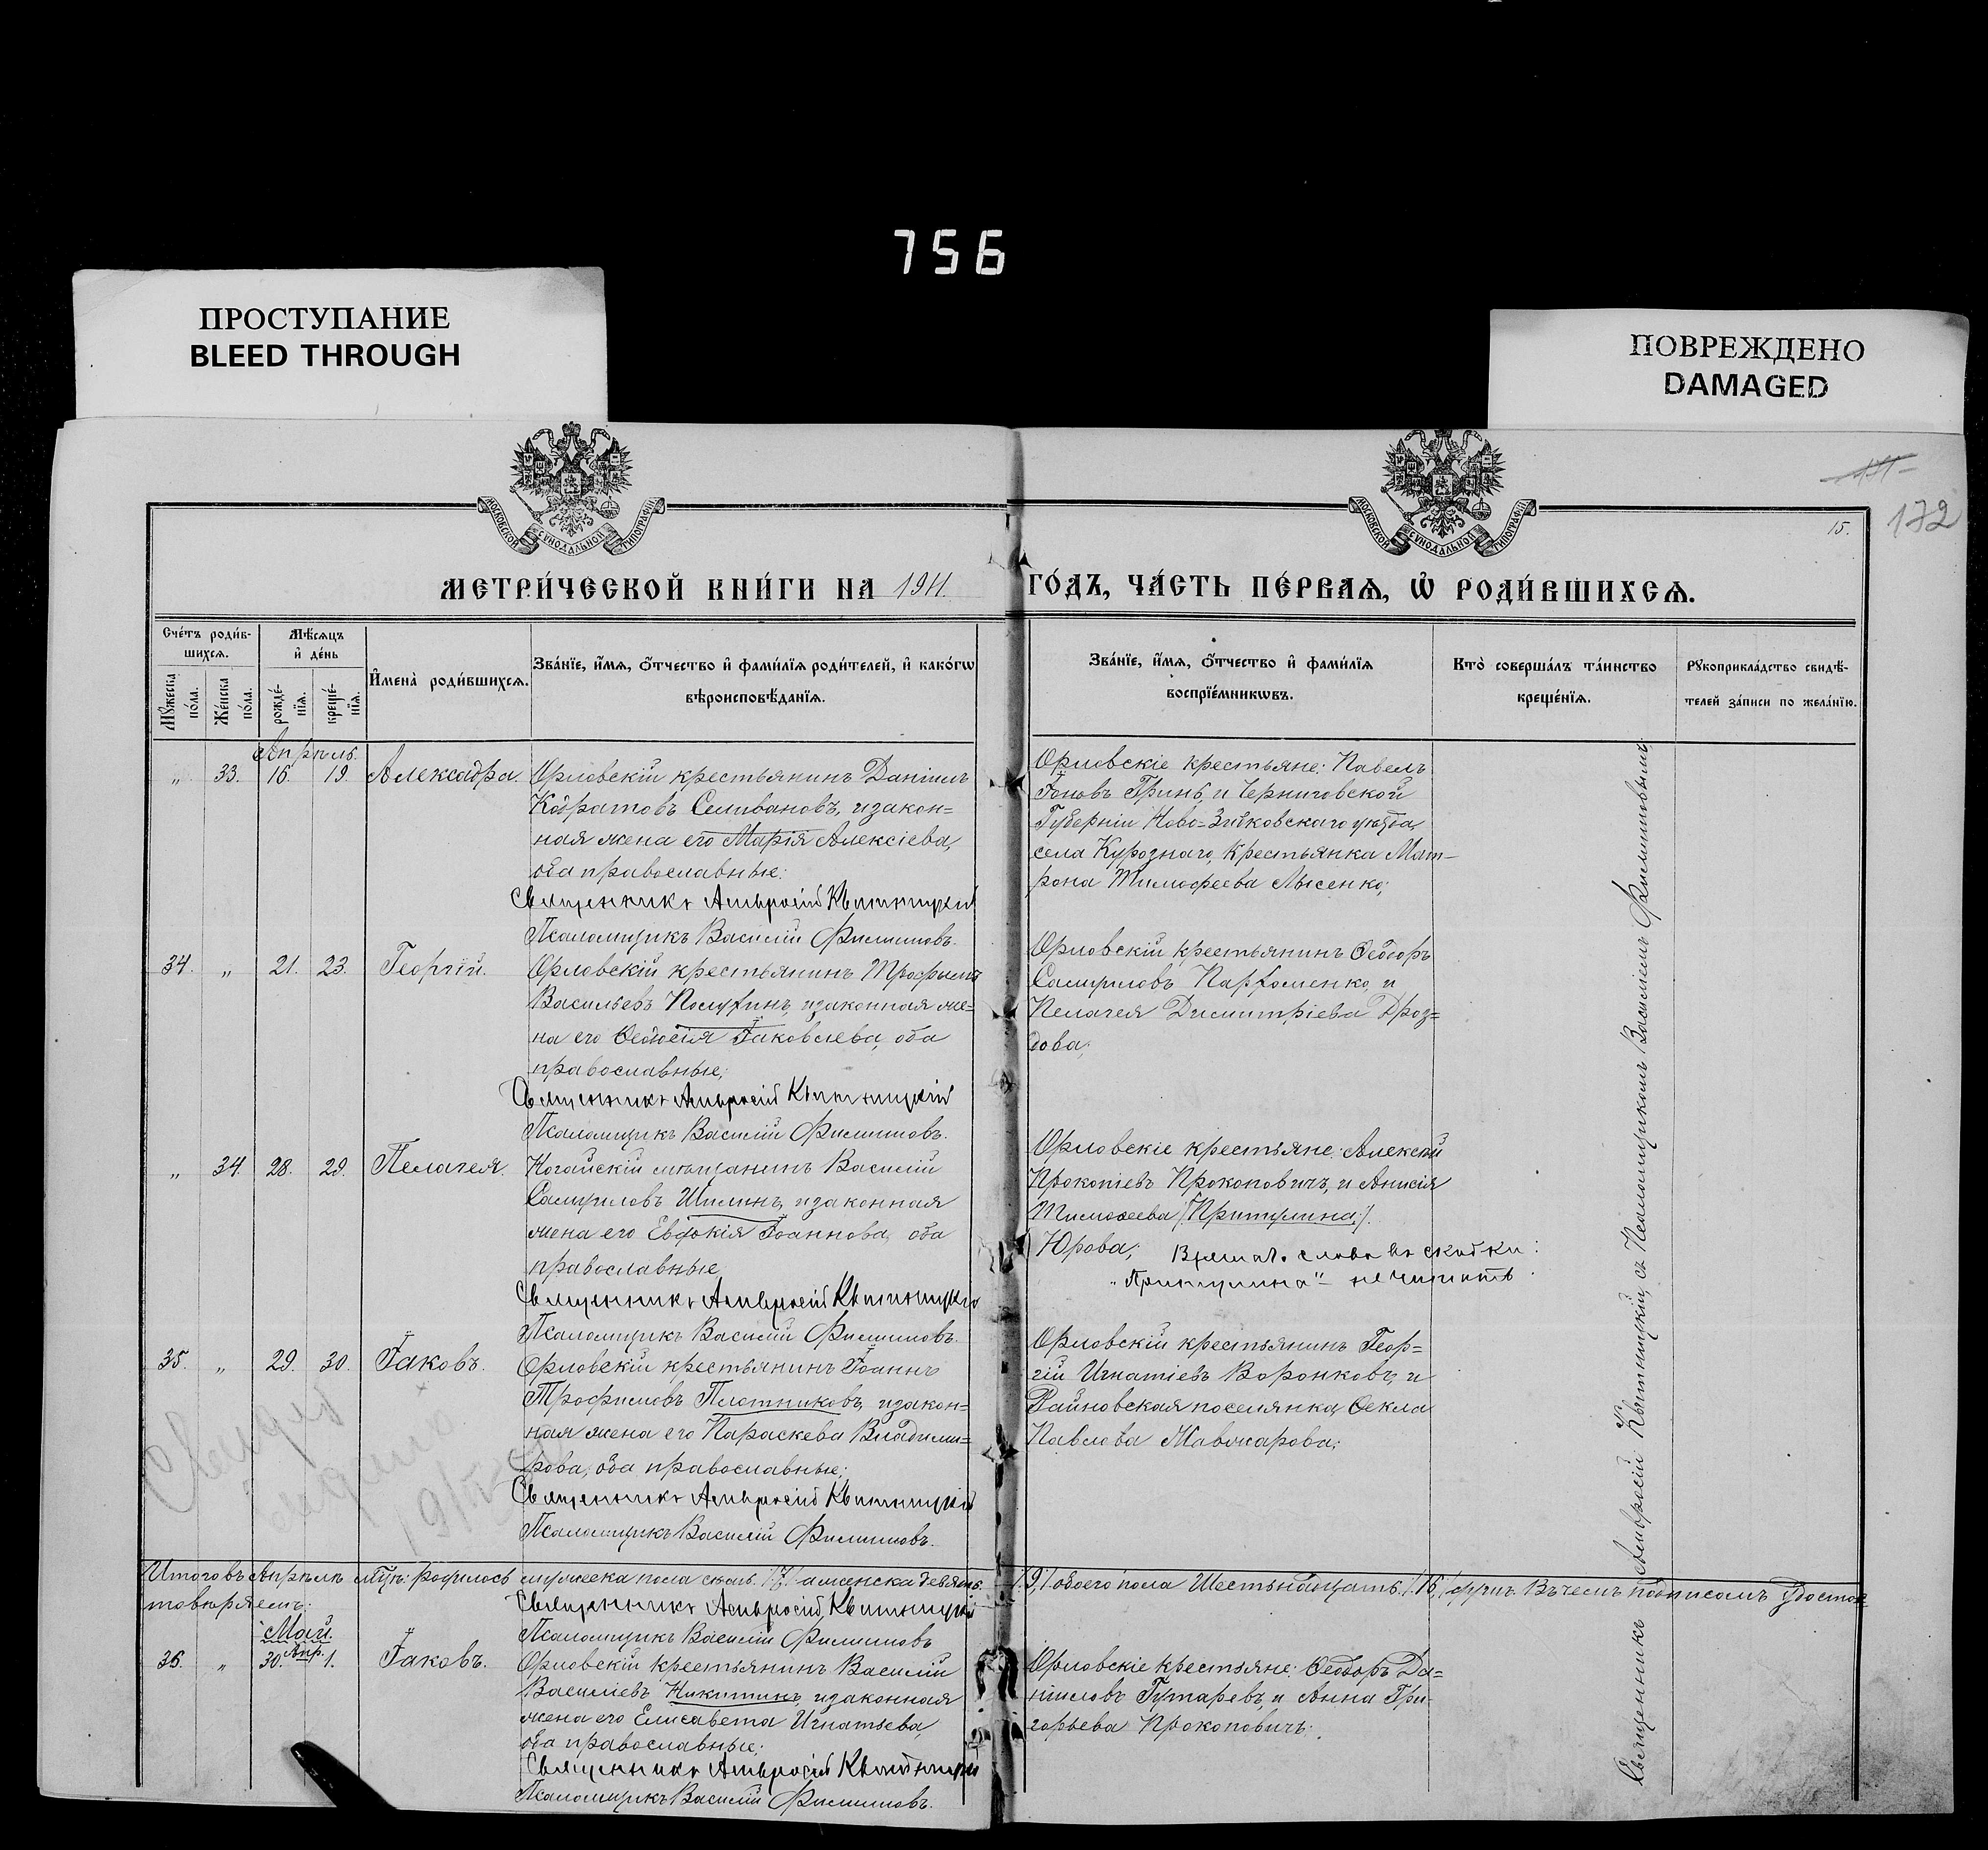 756
ПРОСТУПАНИЕ
BLEED THROUGH
ПОВРЕЖДЕНО
DAMAGED
МОСКОВСКОЙ СУНОДАЛЬНОЙ ТИПОГРАФІИ
МОСКОВСКОЙ СУНОДАЛЬНОЙ ТИПОГРАФІИ
171
172
15.
МЕТРИ́ЧЕСКОЙ КНИ́ГИ НА 1911. ГО́ДЪ, ЧА́СТЬ ПЕ́РВАѦ, Ѡ҆ РОДИ́ВШИХСѦ.
Сче́тъ роди́в-
шихсѧ.
Мꙋ́жеска по́ла.
Же́нска по́ла.
Мѣ́сѧцъ и҆ де́нь
рожде́-нїѧ.
креще́-нїѧ.
И҆мена̀ роди́вшихсѧ.
Зва́нїе, и҆́мѧ, ѻ҆́тчество и҆ фами́лїѧ роди́телей, и҆ како́гѡ
вѣроисповѣ́данїѧ.
Зва́нїе, и҆́мѧ, ѻ҆́тчество и҆ фами́лїѧ
воспрїе́мникѡвъ.
Кто̀ соверша́лъ та́инство
креще́нїѧ.
Рꙋкоприкла́дство свидѣ́-
телей за́писи по жела́нїю.
Апрѣль.
„ 33. 16. 19. Александра
Орловскій крестьянинъ Даніилъ
Кодратовъ Селивановъ, и закон=
ная жена его Марія Алексіева,
оба православные:
Священникъ Амвросій Квитницкій
Псаломщикъ Василій Филиповъ.
Орловскіе крестьяне: Павелъ
Іоновъ Гринь, и Черниговской
Губерніи Ново-Зибковскаго уѣзда,
села Курознаго, крестьянка Мат-
рона Тимофеева Лысенко;
34. „ 21. 23. Георгій.
Орловскій крестьянинъ Трофимъ
Васильевъ, и законная же=
на его Ѳеодосія Іаковлева, оба
православные;
Священникъ Амвросій Квитницкій
Псаломщикъ Василій Филиповъ.
Орловскій крестьянинъ Ѳедоръ
Самуиловъ Парфоменко, и
Пелагея Димитріева Дроз=
дова;
„ 34. 28. 29. Пелагея.
Ногайскій мѣщанинъ Василій
Самуиловъ Шилинъ, и законная
жена его Евдокія Іоаннова, оба
православные,
Священникъ Амвросій Квитницкій
Псаломщикъ Василій Филиповъ.
Орловскіе крестьяне: Алексѣй
Прокопіевъ Прокоповичъ, и Анисія
Тимоѳеева /:Притулина:/.
Юрова; слово въ скобки:
„Притулина" - не читать.
35. „ 29. 30. Іаковъ.
Орловскій крестьянинъ Іоаннъ
Трофимовъ Плотниковъ, и закон=
ная жена его Параскева Владими=
рова, оба православные;
Священникъ Амвросій Квитницкій
Псаломщикъ Василій Филиповъ.
Орловскій крестьянинъ Геор=
гій Игнатіевъ Воронковъ, и
Райновская поселянка Ѳекла
Павлова Жавокарова;
Итого въ Апрѣлѣ мцѣ: родилось мужеска пола семь /:7:/ а женска девять /:9:/ обоего пола Шестьнадцать /:16:/ душъ. Въ чемъ подписомъ удосто=
товѣряемъ:
Священникъ Амвросій Квитницкій
Псаломщикъ Василій Филиповъ
Май.
36. „ 30. Апр. 1. Іаковъ.
Орловскій крестьянинъ Василій
Василіевъ Никитинъ, и законная
жена его Елисавета Игнатьева,
оба православные;
Священникъ Амвросій Квитницкій
Псаломщикъ Василій Филиповъ.
Орловскіе крестьяне: Ѳеодоръ Да=
ниловъ Гутаревъ, и Анна Гри-
горьева Прокоповичъ.
Священникъ Амвросій Квитницкій, съ Псаломщикомъ Василіемъ Филиповымъ.